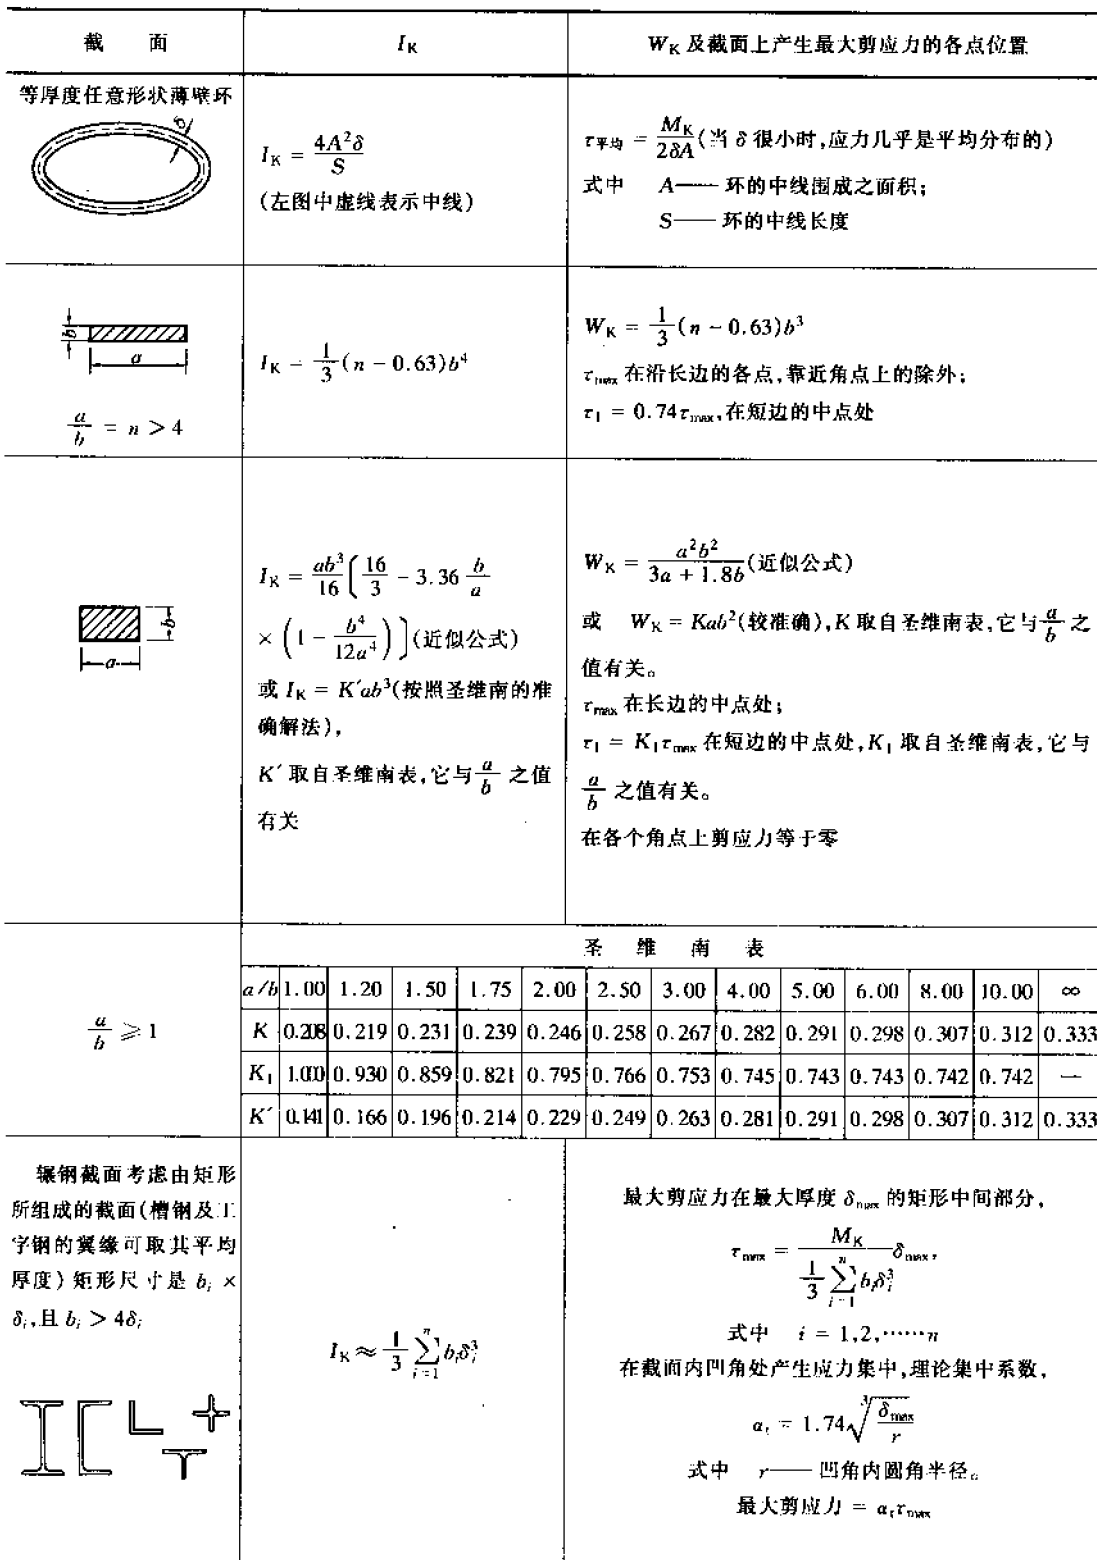 截 面
I_K
W_K 及截面上产生最大剪应力的各点位置
等厚度任意形状薄壁环
δ
I_K = 4A²δ/S
(左图中虚线表示中线)
τ平均 = M_K/2δA (当 δ 很小时,应力几乎是平均分布的)
式中 A—— 环的中线围成之面积;
S—— 环的中线长度
b
a
a/b = n > 4
I_K = 1/3 (n − 0.63)b⁴
W_K = 1/3 (n − 0.63)b³
τmax 在沿长边的各点,靠近角点上的除外;
τ₁ = 0.74τmax,在短边的中点处
b
a
I_K = ab³/16 [16/3 − 3.36 b/a
× (1 − b⁴/12a⁴)](近似公式)
或 I_K = K′ab³(按照圣维南的准
确解法),
K′ 取自圣维南表,它与 a/b 之值
有关
W_K = a²b²/(3a + 1.8b) (近似公式)
或 W_K = Kab²(较准确),K 取自圣维南表,它与 a/b 之
值有关。
τmax 在长边的中点处;
τ₁ = K₁τmax 在短边的中点处,K₁ 取自圣维南表,它与
a/b 之值有关。
在各个角点上剪应力等于零
a/b ⩾ 1
圣 维 南 表
a/b 1.00 1.20 1.50 1.75 2.00 2.50 3.00 4.00 5.00 6.00 8.00 10.00 ∞
K 0.208 0.219 0.231 0.239 0.246 0.258 0.267 0.282 0.291 0.298 0.307 0.312 0.333
K₁ 1.000 0.930 0.859 0.821 0.795 0.766 0.753 0.745 0.743 0.743 0.742 0.742 —
K′ 0.141 0.166 0.196 0.214 0.229 0.249 0.263 0.281 0.291 0.298 0.307 0.312 0.333
辗钢截面考虑由矩形
所组成的截面(槽钢及工
字钢的翼缘可取其平均
厚度)矩形尺寸是 bᵢ ×
δᵢ,且 bᵢ > 4δᵢ
I_K ≈ 1/3 Σ(i=1→n) bᵢδᵢ³
最大剪应力在最大厚度 δmax 的矩形中间部分,
τmax = M_K/(1/3 Σ(i=1→n) bᵢδᵢ³) δmax,
式中 i = 1,2,……n
在截面内凹角处产生应力集中,理论集中系数,
αₜ = 1.74 ∛(δmax/r)
式中 r—— 凹角内圆角半径。
最大剪应力 = αₜτmax